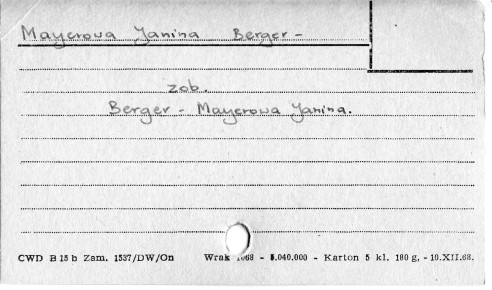 Mayerowa Janina Berger -
zob.
Berger - Mayerowa Janina.
CWD B 15 b Zam. 1537/DW/On Wrak 1968 - 5.040.000 - Karton 5 kl. 180 g, - 10.XII.68.